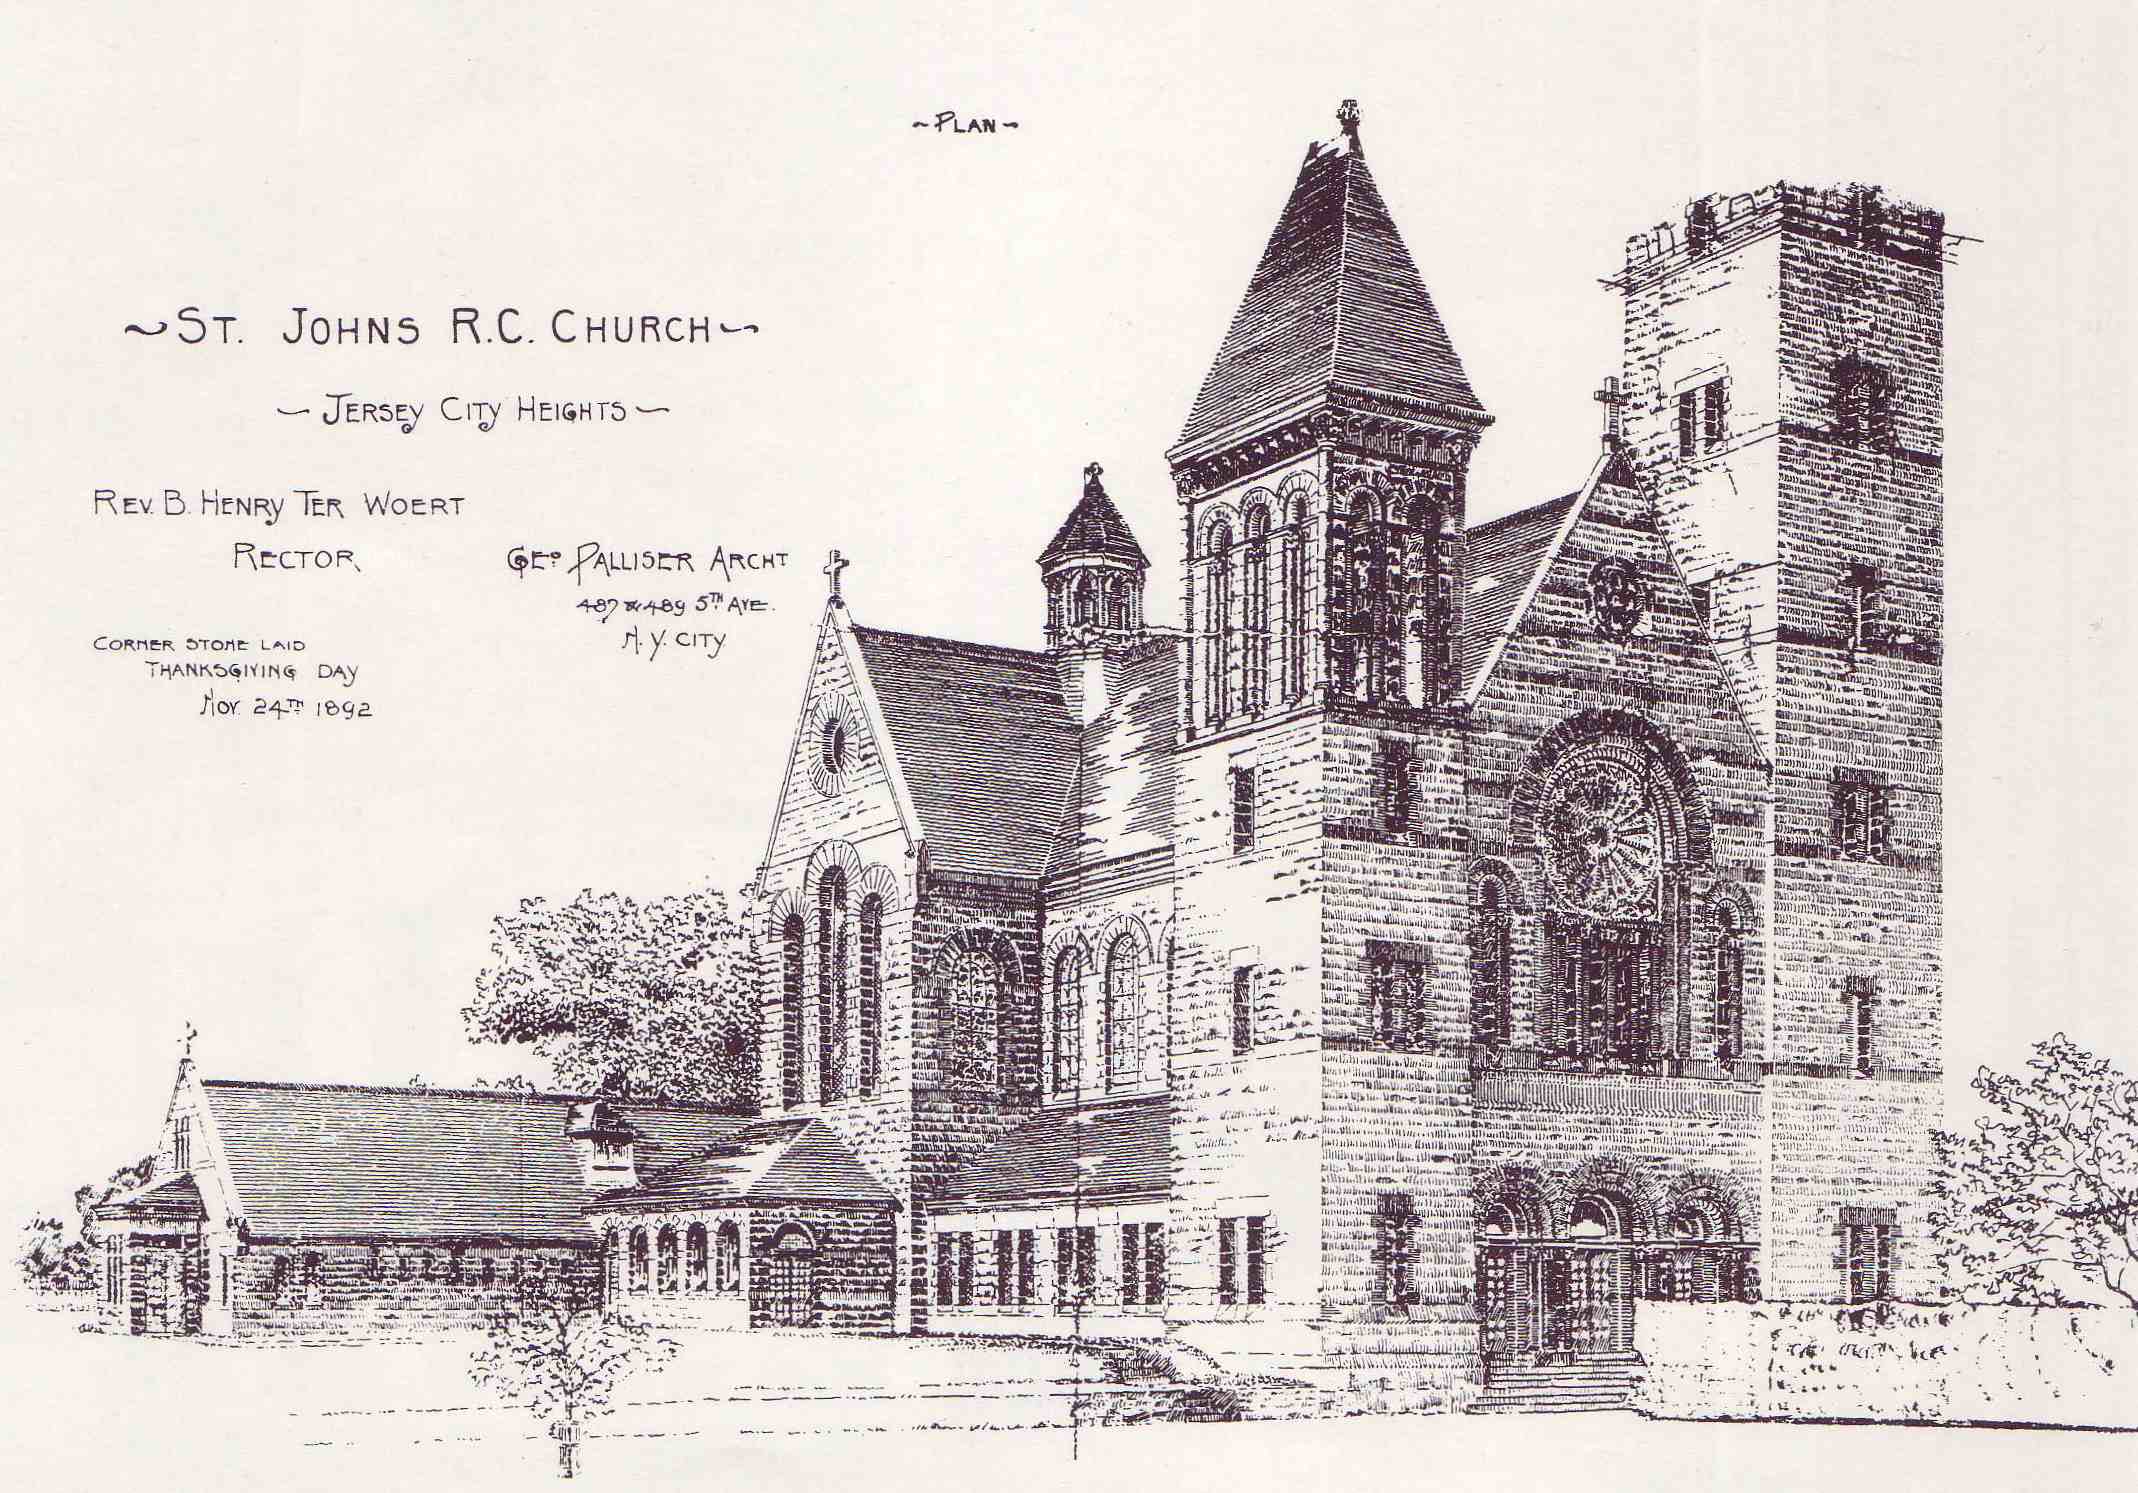 ~PLAN~
~ST. JOHNS R.C. CHURCH~
~JERSEY CITY HEIGHTS~
REV. B. HENRY TER WOERT
RECTOR,
GEO. PALLISER ARCHT
487 & 489 5TH AVE.
N. Y. CITY
CORNER STONE LAID
THANKSGIVING DAY
NOV. 24TH 1892